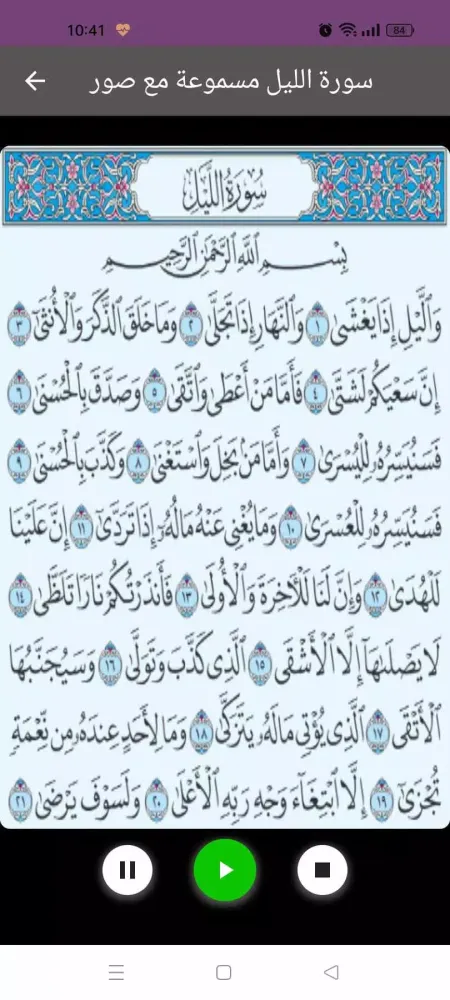 10:41
84
سورة الليل مسموعة مع صور
سُورَةُ اللَّيْلِ
بِسْمِ اللَّهِ الرَّحْمَٰنِ الرَّحِيمِ
وَٱلَّيْلِ إِذَا يَغْشَىٰ ١ وَٱلنَّهَارِ إِذَا تَجَلَّىٰ ٢ وَمَا خَلَقَ ٱلذَّكَرَ وَٱلْأُنثَىٰٓ ٣
إِنَّ سَعْيَكُمْ لَشَتَّىٰ ٤ فَأَمَّا مَنْ أَعْطَىٰ وَٱتَّقَىٰ ٥ وَصَدَّقَ بِٱلْحُسْنَىٰ ٦
فَسَنُيَسِّرُهُۥ لِلْيُسْرَىٰ ٧ وَأَمَّا مَنۢ بَخِلَ وَٱسْتَغْنَىٰ ٨ وَكَذَّبَ بِٱلْحُسْنَىٰ ٩
فَسَنُيَسِّرُهُۥ لِلْعُسْرَىٰ ١٠ وَمَا يُغْنِى عَنْهُ مَالُهُۥٓ إِذَا تَرَدَّىٰٓ ١١ إِنَّ عَلَيْنَا
لَلْهُدَىٰ ١٢ وَإِنَّ لَنَا لَلْـَٔاخِرَةَ وَٱلْأُولَىٰ ١٣ فَأَنذَرْتُكُمْ نَارًا تَلَظَّىٰ ١٤
لَا يَصْلَىٰهَآ إِلَّا ٱلْأَشْقَى ١٥ ٱلَّذِى كَذَّبَ وَتَوَلَّىٰ ١٦ وَسَيُجَنَّبُهَا
ٱلْأَتْقَى ١٧ ٱلَّذِى يُؤْتِى مَالَهُۥ يَتَزَكَّىٰ ١٨ وَمَا لِأَحَدٍ عِندَهُۥ مِن نِّعْمَةٍ
تُجْزَىٰٓ ١٩ إِلَّا ٱبْتِغَآءَ وَجْهِ رَبِّهِ ٱلْأَعْلَىٰ ٢٠ وَلَسَوْفَ يَرْضَىٰ ٢١